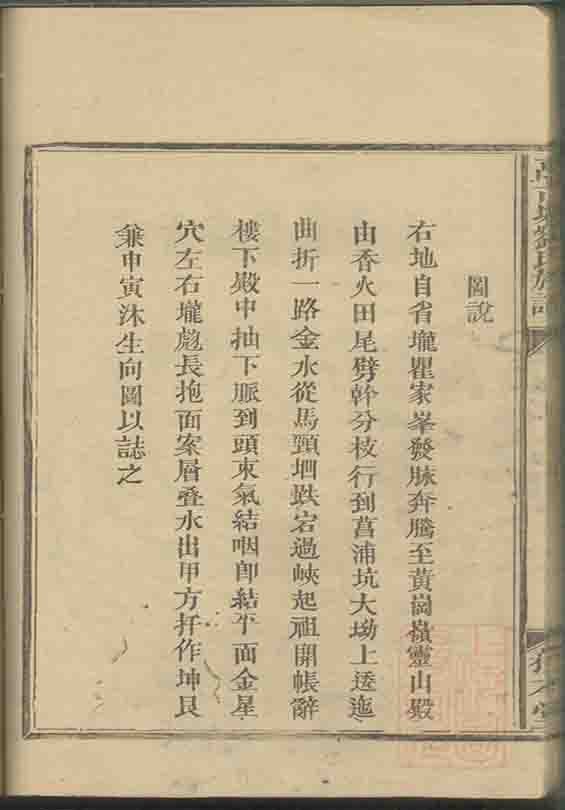 圖說
右地自省壠瞿家峯發脉奔騰至黃崗嶺靈山殿
由香火田尾劈幹分枝行到菖浦坑大坳上逶迤
曲折一路金水從馬頸堋跌宕過峽起祖開帳辭
樓下殿中抽下脈到頭束氣結咽卽結平面金星
穴左右壠彪長抱面案層叠水出甲方扦作坤艮
兼申寅沐生向圖以誌之
劉氏族